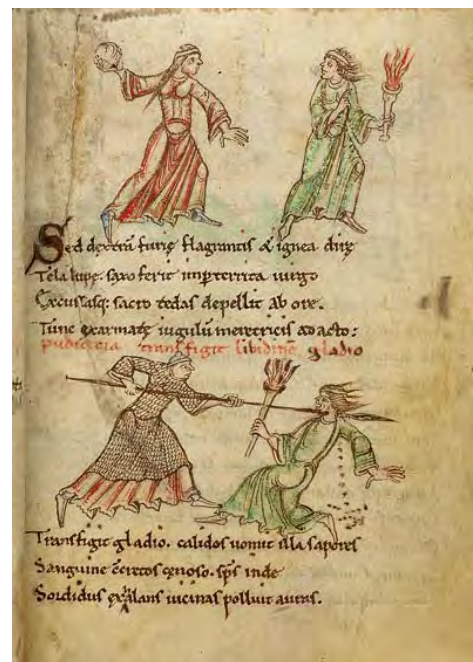 Sed dextrã furię flagrantis & ignea dirę
Tela lupę. saxo ferit inperterrita uirgo
Excussasq: sacro tedas depellit ab ore.
Tunc exarmatę iugulũ meretricis adacto:
pudicicia transfigit libidinẽ gladio
Transfigit gladio. calidos uomit illa uapores
Sanguine c̃cretos cęnoso. sp̃s inde
Sordidus exalans uicinas polluit auras.